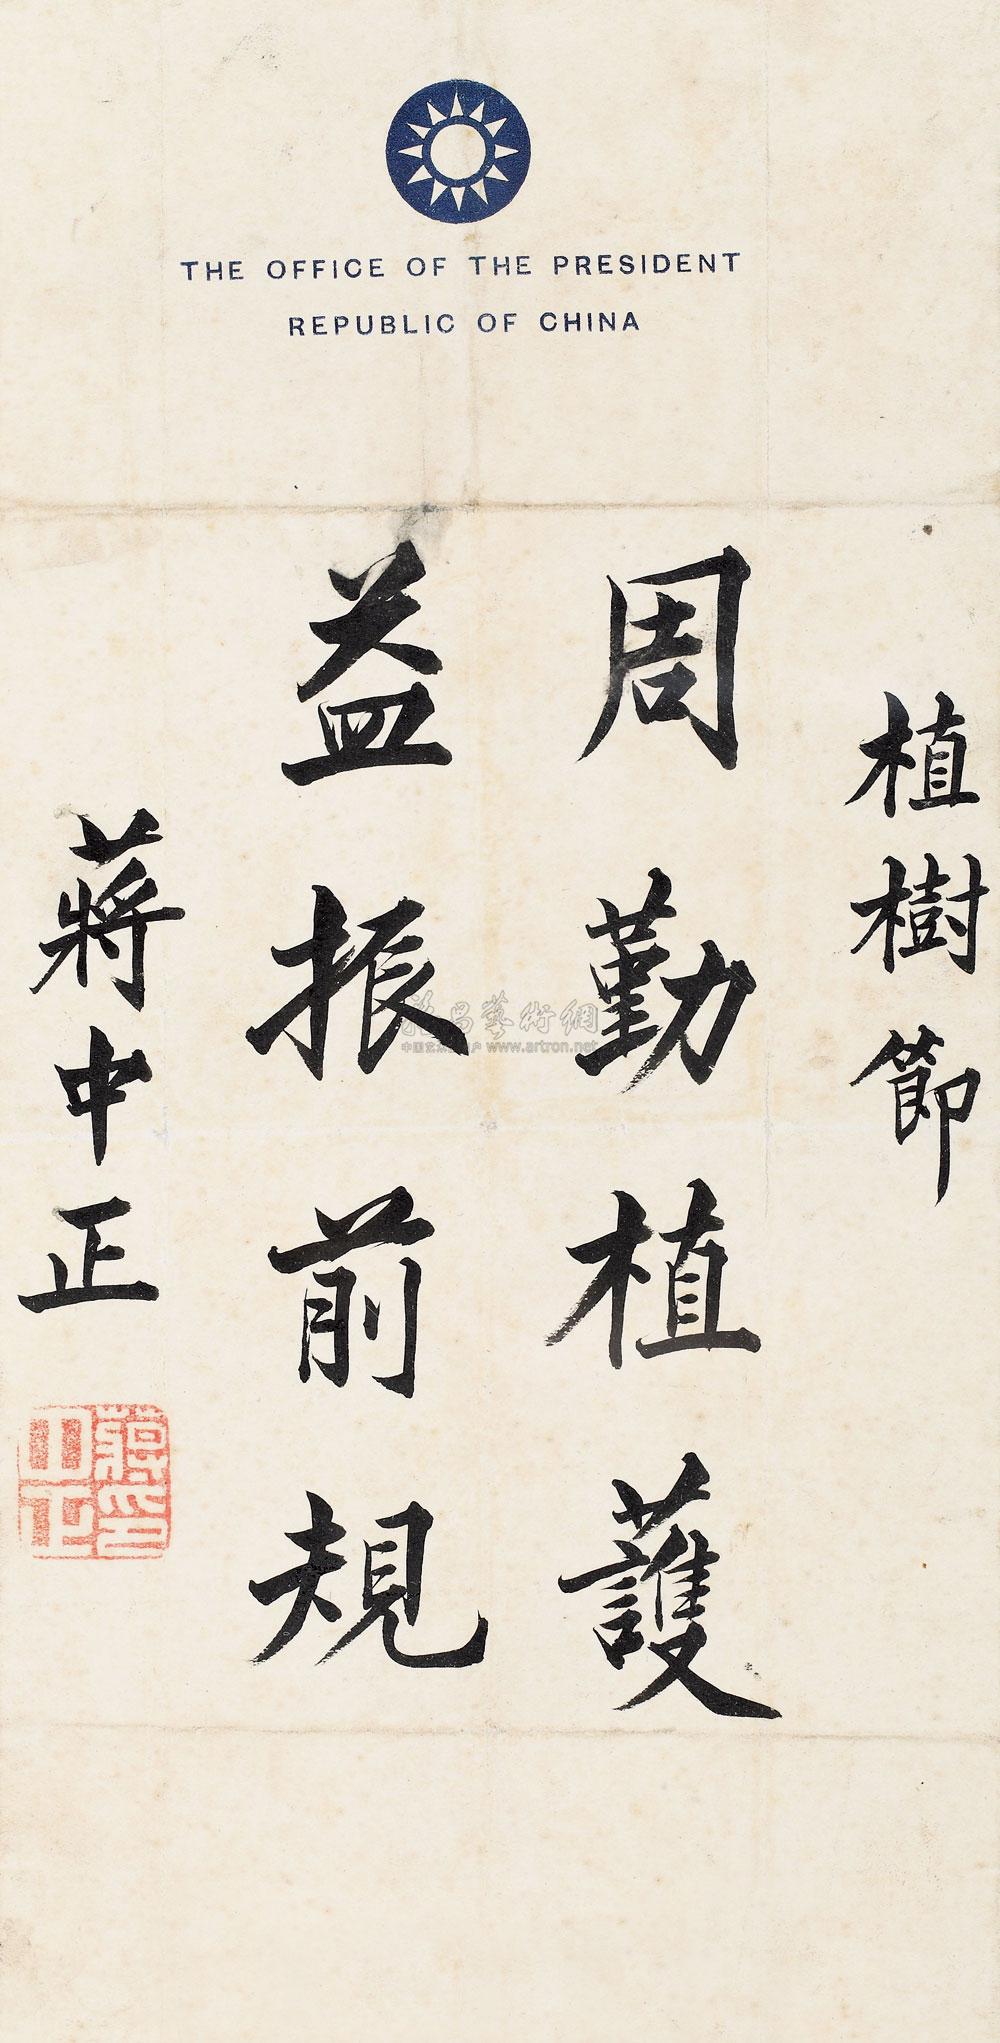 THE OFFICE OF THE PRESIDENT
REPUBLIC OF CHINA
植樹節
周勤植護
益振前規
蔣中正
蔣中正印
雅昌藝術網
www.artron.net